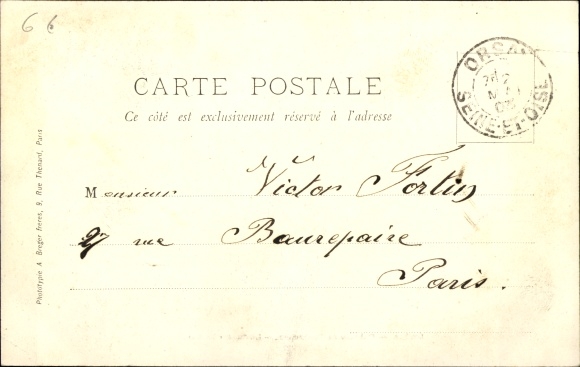 66
ORSAY
SEINE-ET-OISE
CARTE POSTALE
Ce côté est exclusivement réservé à l'adresse
Monsieur Victor Fortin
27 rue Baurepaire
Paris.
Phototypie A Breger frères, 9, Rue Thenard, Paris